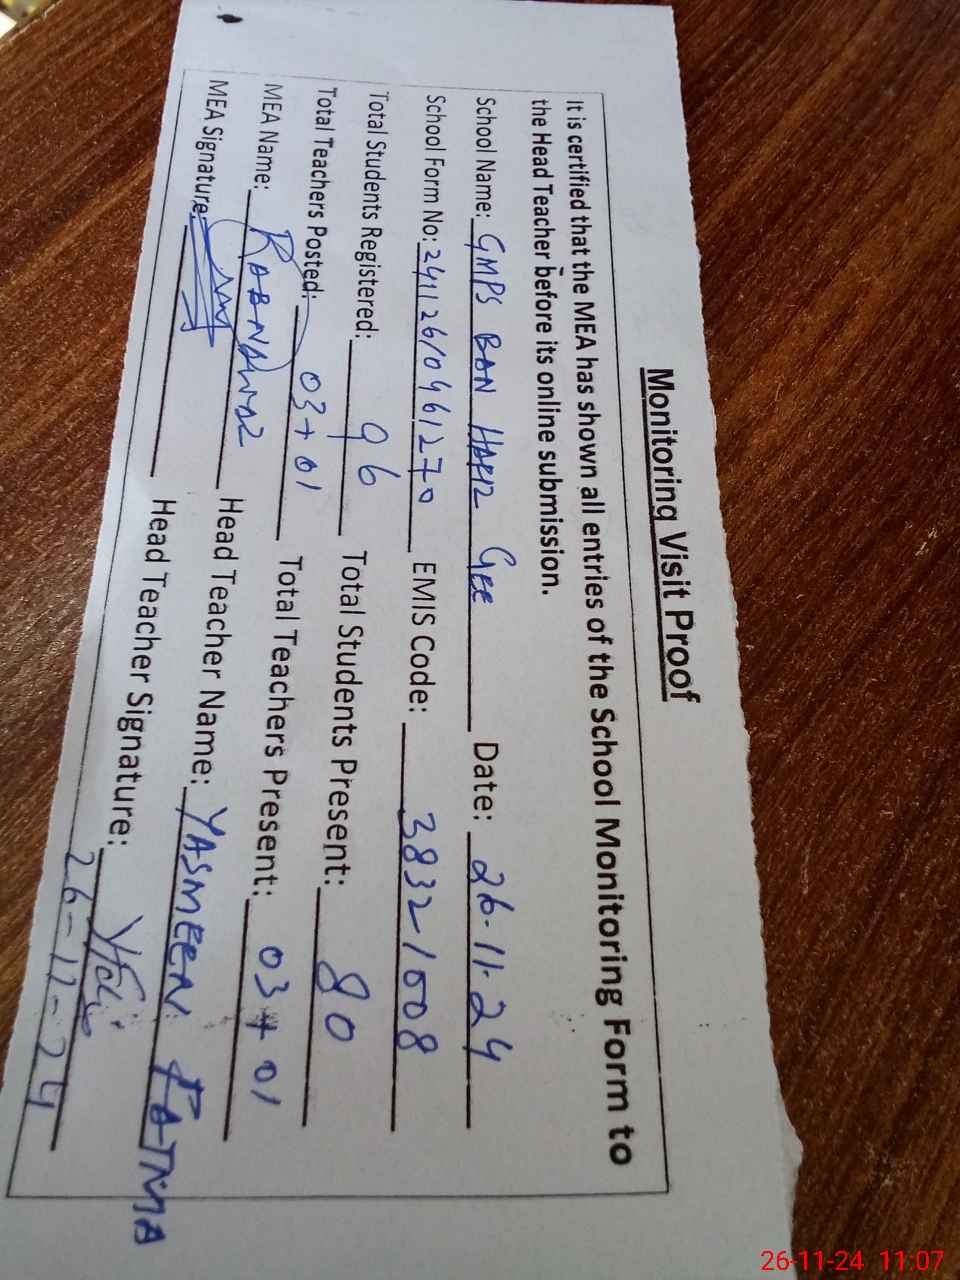 Monitoring Visit Proof
It is certified that the MEA has shown all entries of the School Monitoring Form to
the Head Teacher before its online submission.
School Name: GMPS BAN HAFIZ GEE Date: 26-11-24
School Form No: 241126/0461270 EMIS Code: 38321008
Total Students Registered: 96 Total Students Present: 80
Total Teachers Posted: 03+01 Total Teachers Present: 03+01
MEA Name: Head Teacher Name: YASMEEN FATMA
MEA Signature: Head Teacher Signature:
26-11-24
26-11-24 11:07